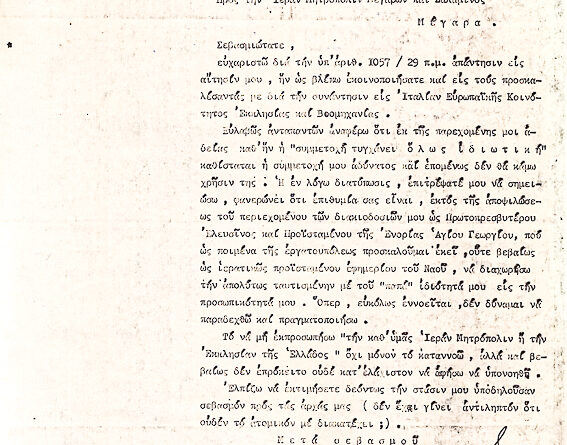 Πρός τήν Ἱεράν Μητρόπολιν Μεγάρων καί Σαλαμῖνος
Μέγαρα.
Σεβασμιώτατε,
εὐχαριστῶ διά τήν ὑπ'ἀριθ. 1057 / 29 π.μ. ἀπάντησιν εἰς
αἴτησίν μου, ἥν ὡς βλέπω ἐκοινοποιήσατε καί εἰς τούς προσκα-
λέσαντάς με διά τήν συνάντησιν εἰς Ἰταλίαν Εὐρωπαϊκῆς Κοινό-
τητος Ἐκκλησίας καί Βιομηχανίας.
Εὐλαβῶς ἀνταπαντῶν ἀναφέρω ὅτι ἐκ τῆς παρεχομένης μοι ἀ-
δείας καθ'ἥν ἡ "συμμετοχή τυγχάνει ὅλως ἰδιωτική"
καθίσταται ἡ σύμμετοχή μου ἀδύνατος καί ἑπομένως δέν θά κάμω
χρῆσιν της. Ἡ ἐν λόγω διατύπωσις, ἐπιτρέψατέ μου νά σημει-
ώσω, φανερώνει ὅτι ἐπιθυμία σας εἶναι, ἐκτός τῆς ἀποψιλώσε-
ως τοῦ περιεχομένου τῶν διακιοδοσιῶν μου ὡς Πρωτοπρεσβυτέρου
Ἐλευσῖνος καί Προϊσταμένου τῆς Ἐνορίας Ἁγίου Γεωργίου, πού
ὡς ποιμένα τῆς ἐργατουπόλεως προσκαλοῦμαι ἐκεῖ, οὔτε βεβαίως
ὡς ἱερατικῶς προϊσταμένου ἐφημερίου τοῦ Ναοῦ, νά διαχωρίσω
τήν ἀπολύτως ταυτισμένην μέ τοῦ "παπᾶ" ἰδιότητά μου εἰς τήν
προσωπικότητά μου. Ὅπερ, εὐκόλως ἐννοεῖται, δέν δύναμαι νά
παραδεχθῶ καί πραγματοποιήσω.
Τό νά μή ἐκπροσωπήσω "τήν καθ'ὑμᾶς Ἱεράν Μητρόπολιν ἤ τήν
Ἐκκλησίαν τῆς Ἑλλάδος" ὄχι μόνον τό κατανοῶ, ἀλλά καί βε-
βαίως δέν ἐπρόκειτο οὐδέ κατ'ἐλάχιστον νά ἀφήσω νά ὑπονοηθῆ.
Ἐλπίζω νά ἐκτιμήσετε δεόντως τήν στάσιν μου ὑποδηλοῦσαν
σεβασμόν πρός τάς ἀρχάς μας ( δέν ἔχει γίνει ἀντιληπτόν ὅτι
οὐδέν τό ἀτομικόν μέ διακατέχει ;) .
Μετά σεβασμοῦ